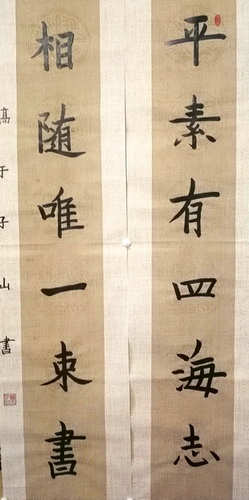 平素有四海志
相随唯一束書
高于子山書